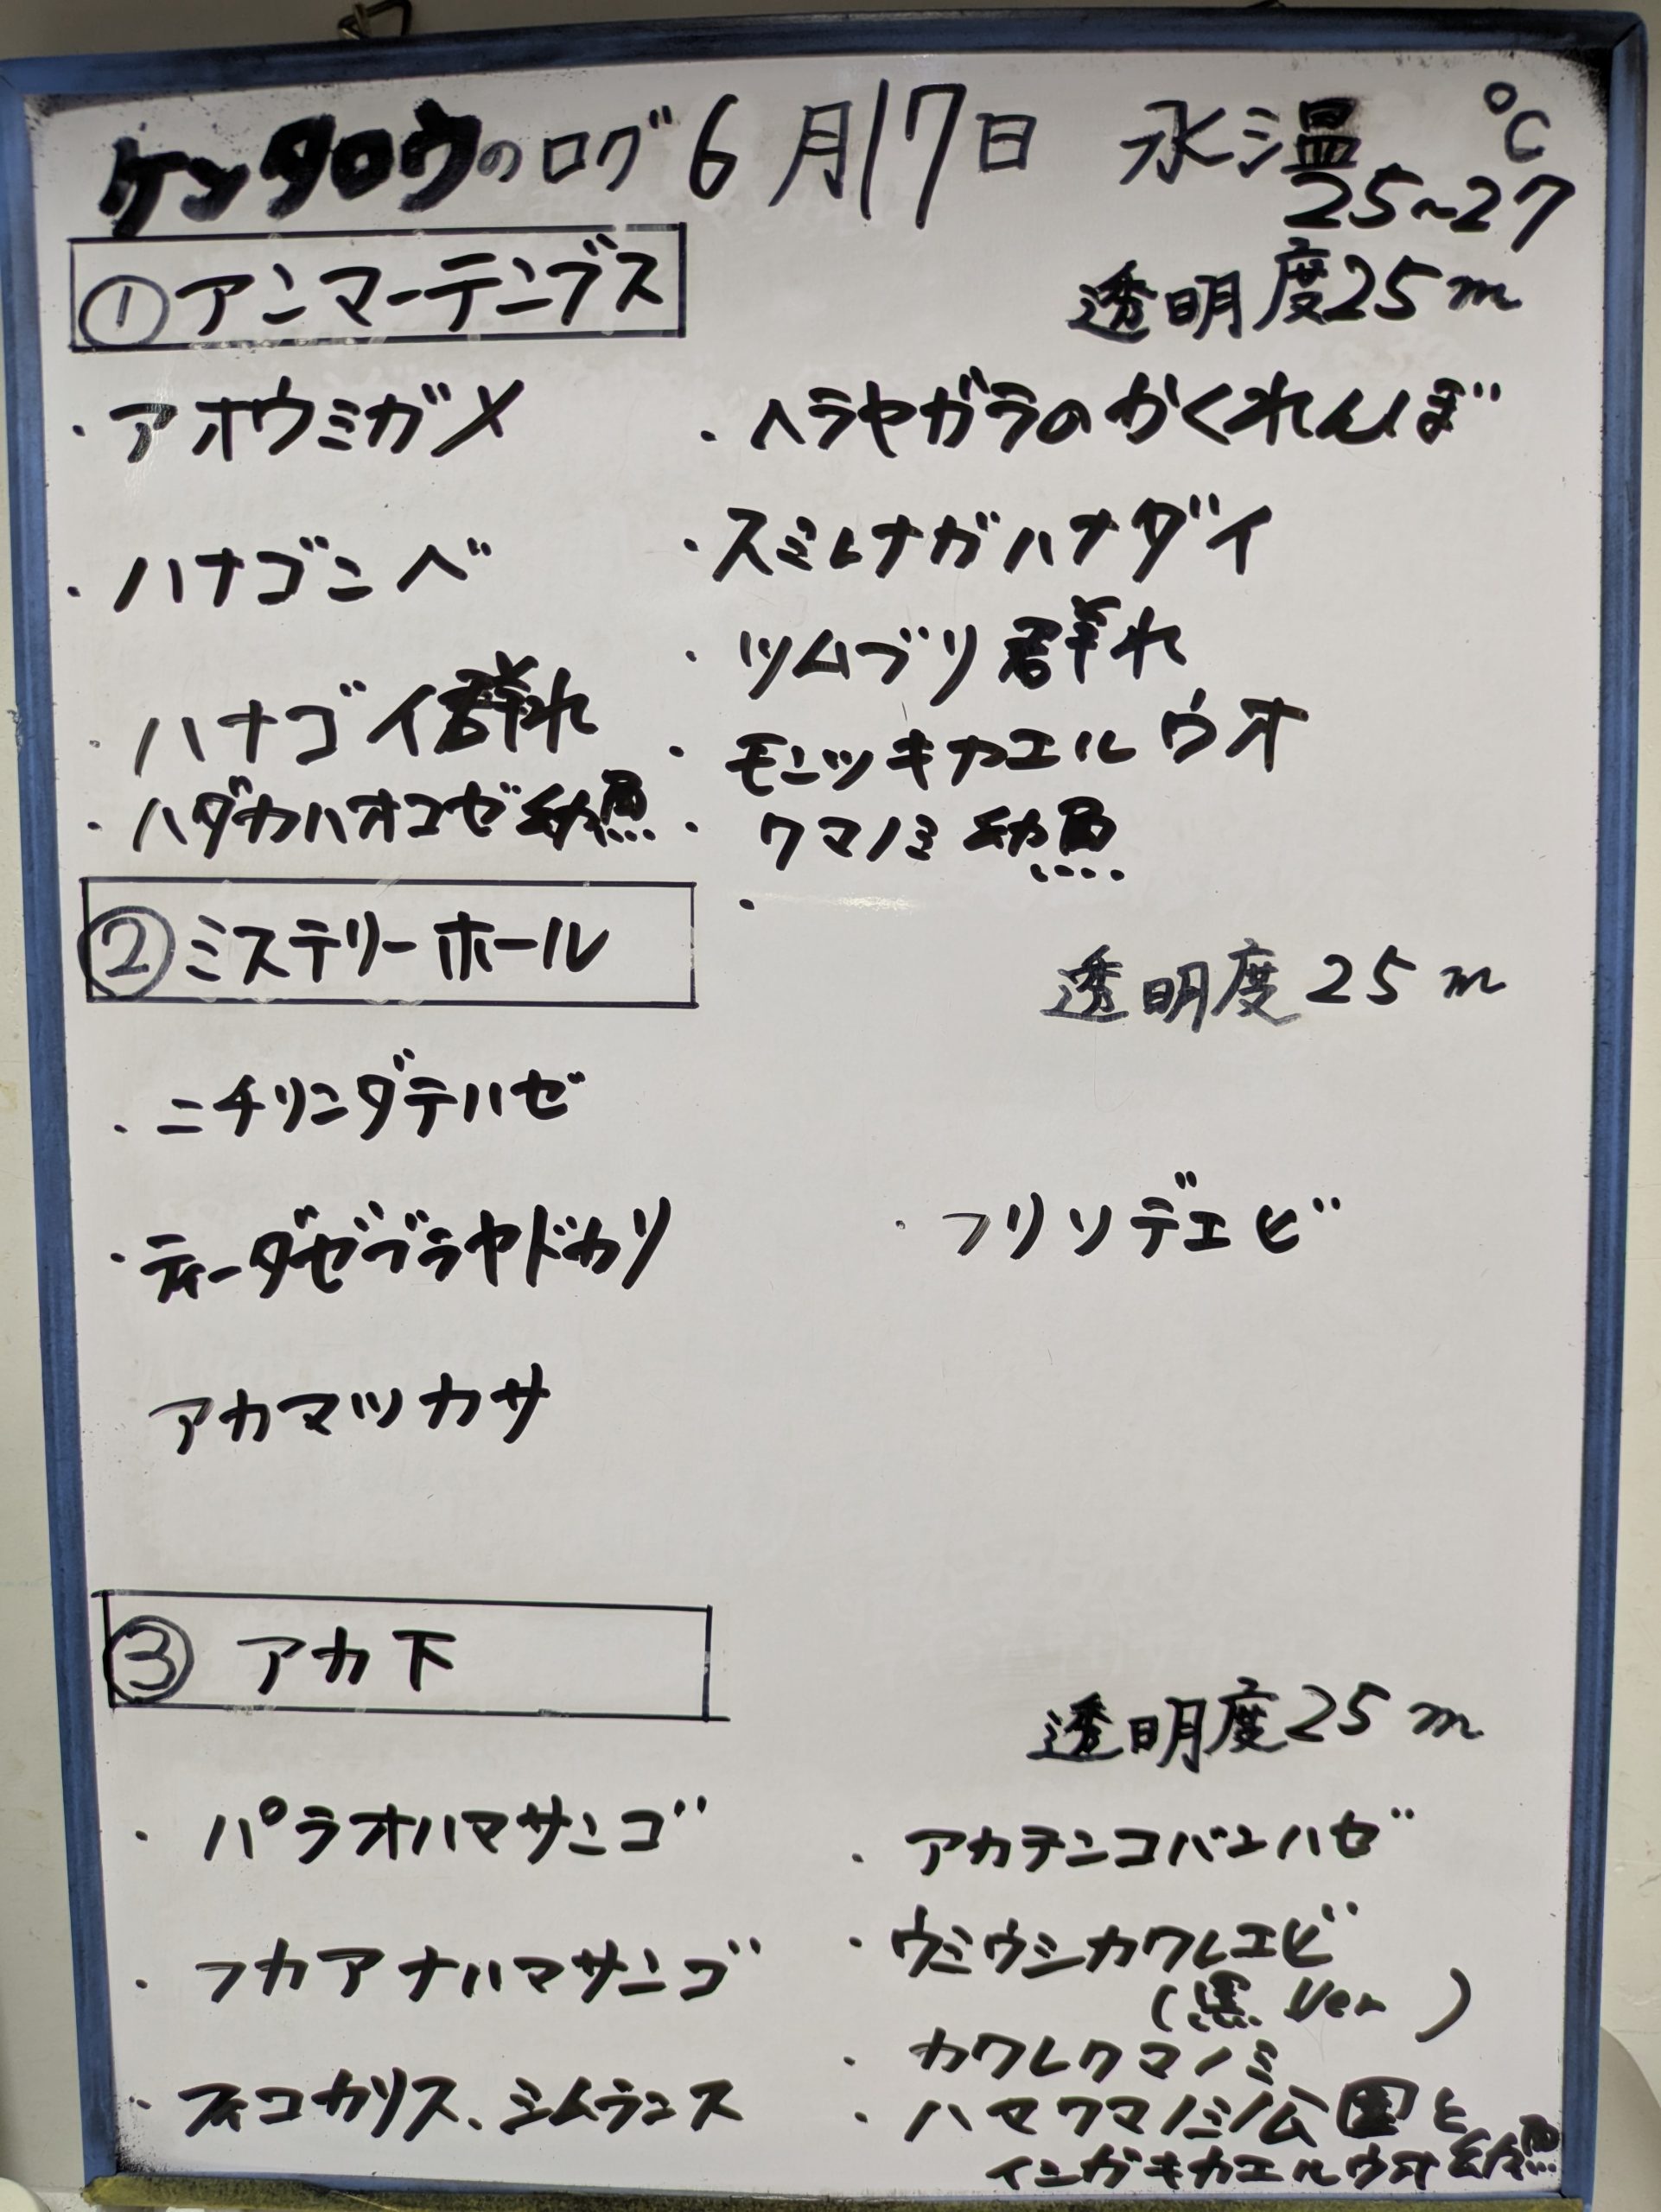 ケンタロウのログ 6月17日 水温 ℃
25~27
①アンマーテンブス
透明度25m
・アオウミガメ
・ハナゴンベ
・ハナゴイ群れ
・ハダカハオコゼ幼魚
・ヘラヤガラのかくれんぼ
・スミレナガハナダイ
・ツムブリ群れ
・モンツキカエルウオ
・クマノミ幼魚
・
②ミステリーホール
透明度25m
・ニチリンダテハゼ
・ティーダゼブラヤドカリ
アカマツカサ
・フリソデエビ
③アカ下
透明度25m
・パラオハマサンゴ
・フカアナハマサンゴ
・フィコカリス、シムランス
・アカテンコバンハゼ
・ウミウシカクレエビ
(黒Ver)
・カクレクマノミ
・ハマクマノミ公園と
インガキカエルウオ幼魚